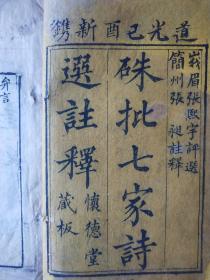 道光己酉新鐫
峩眉張熙宇評選
簡州張 昶註釋
硃批七家詩
選註釋
慎德堂
藏板
弁言